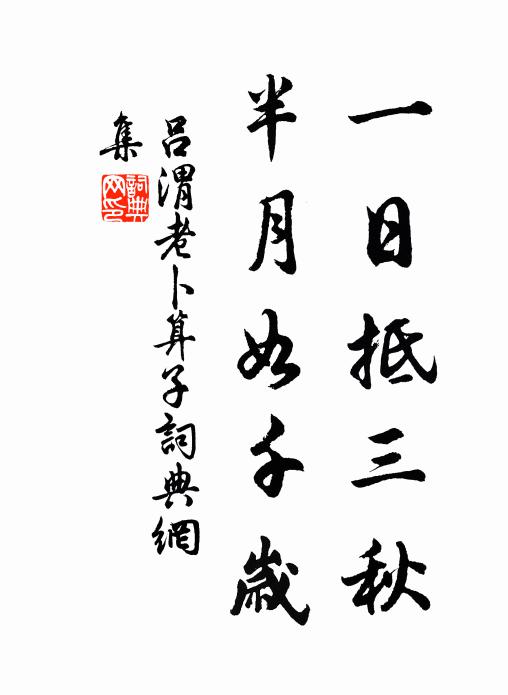 一日抵三秋
半月如千歲
吕渭老卜算子詞典網
集
詞典
网印